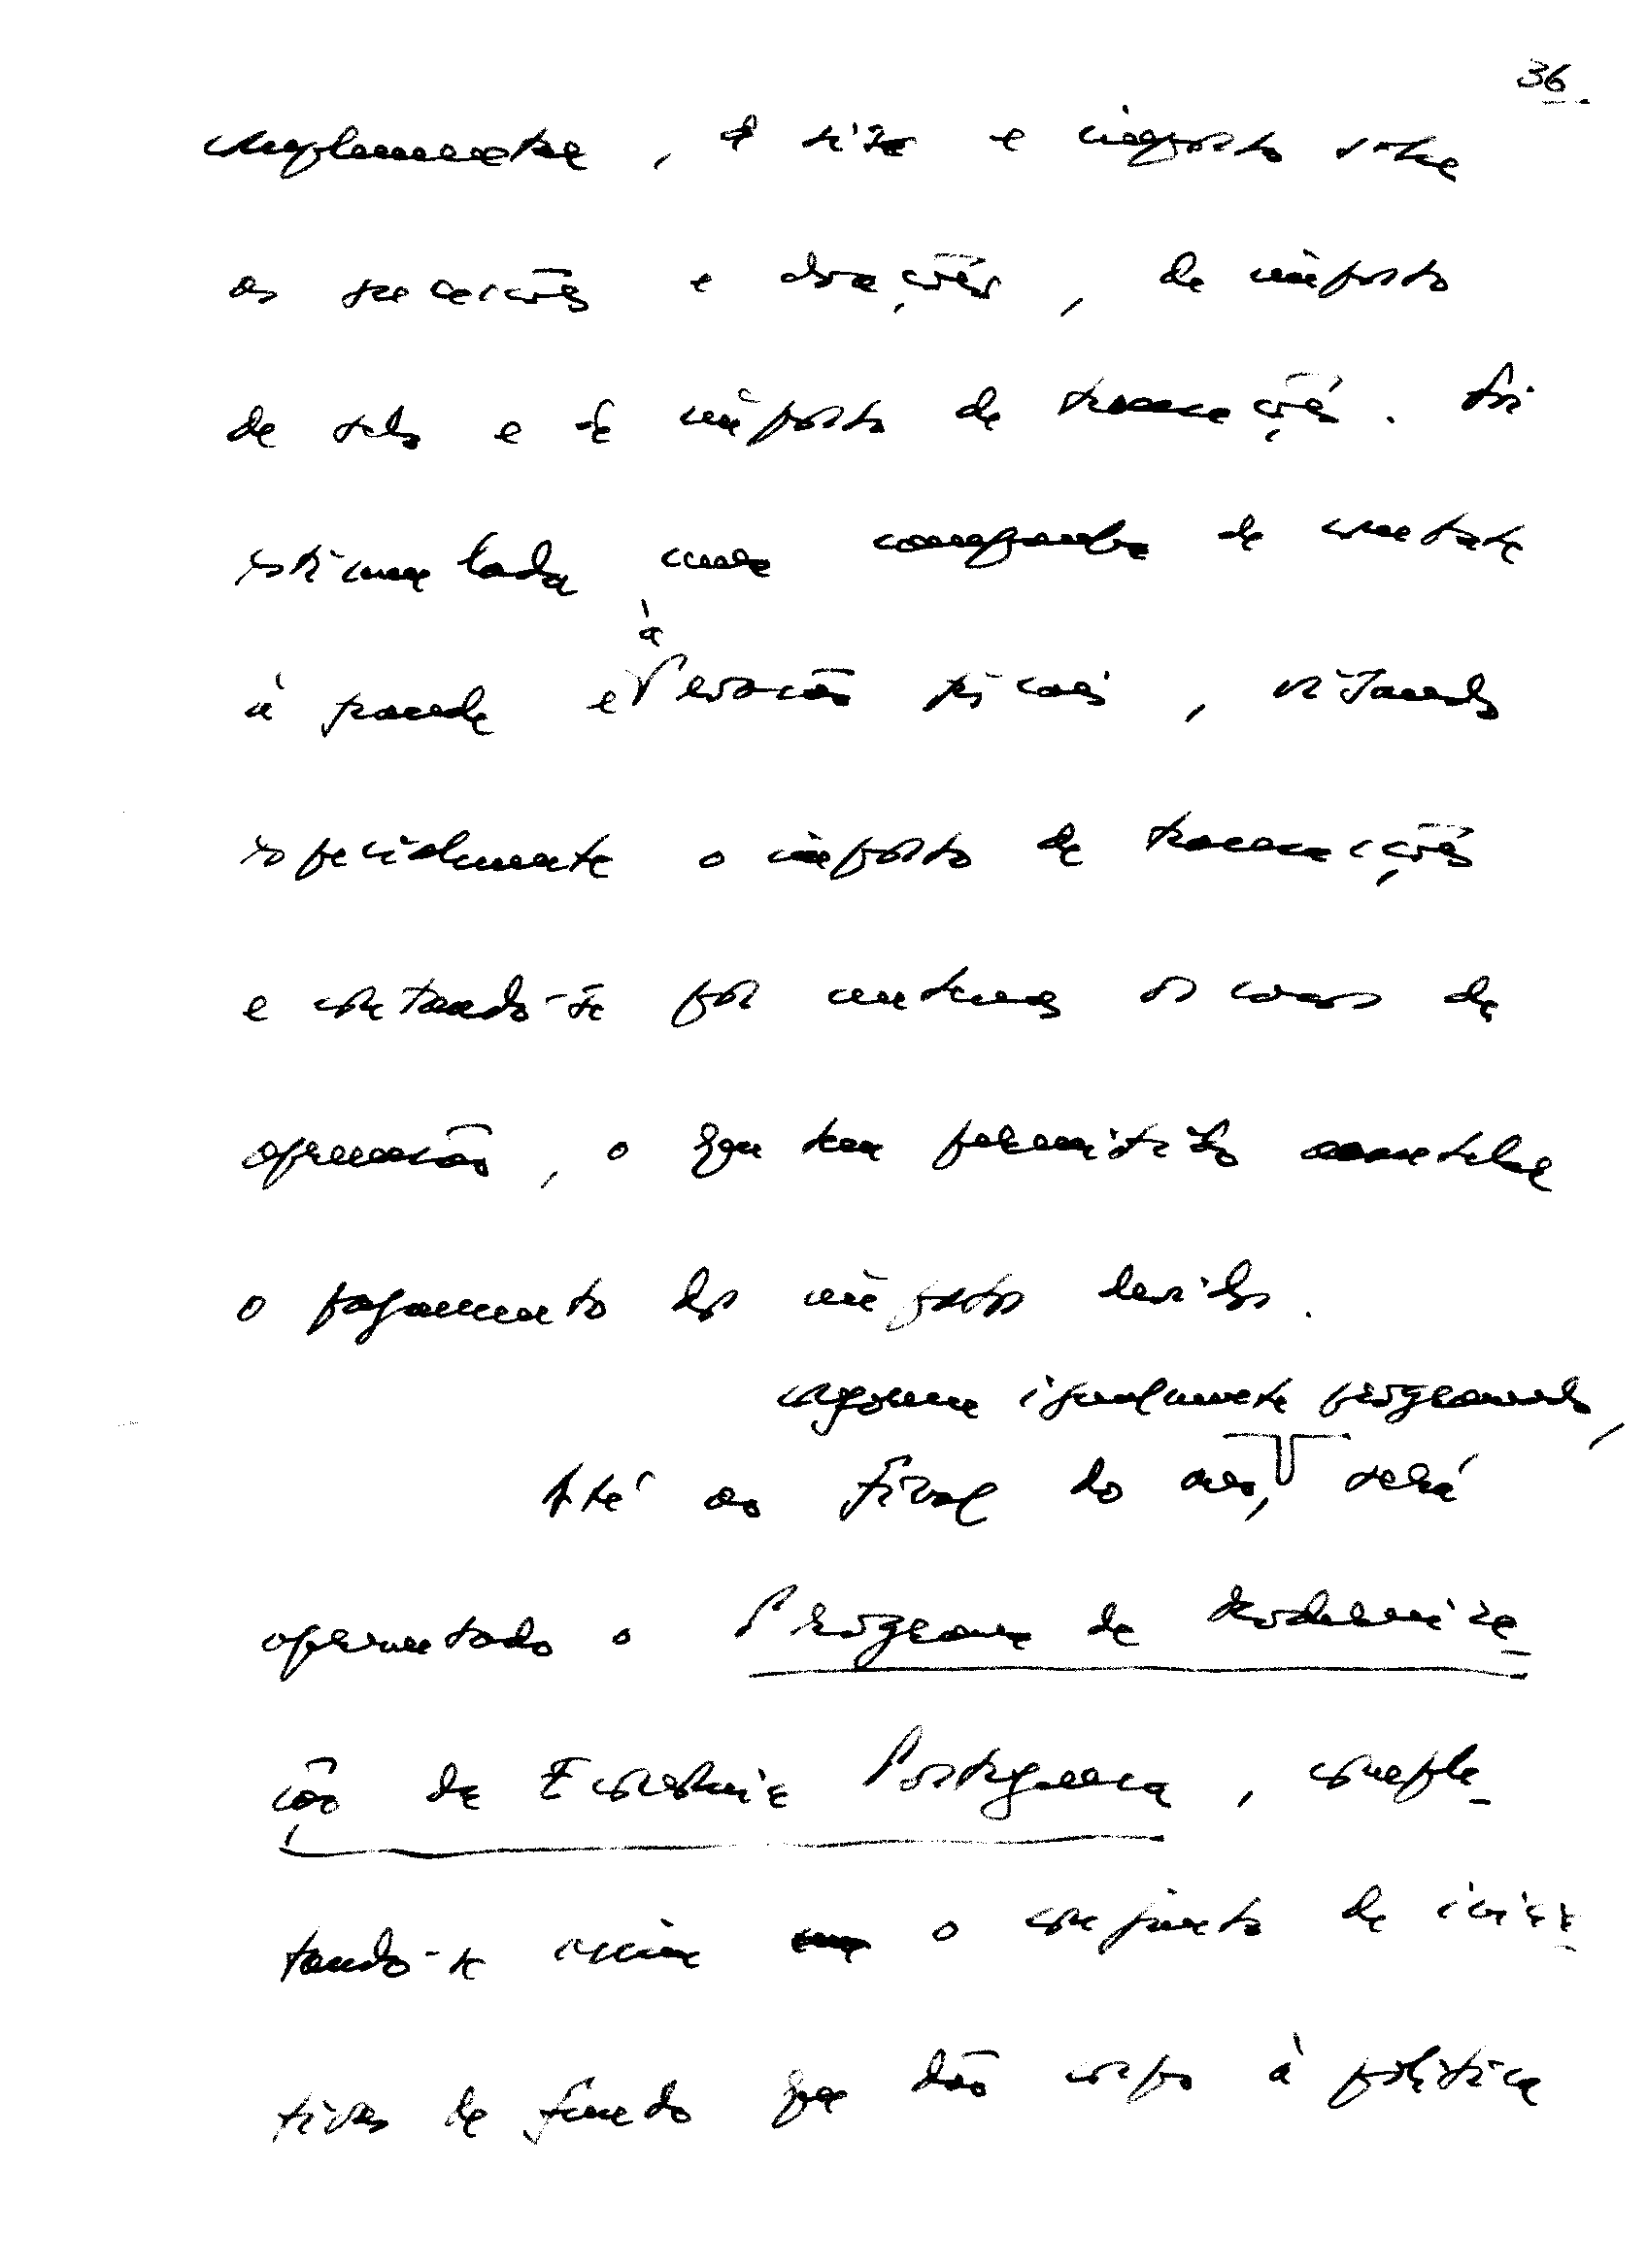 36.
complementar, de sisa e imposto sobre
as sucessões e doações, de imposto
de selo e de imposto de transacções. Foi
estimulada uma campanha de combate
à fraude e à evasão fiscais, visando
especialmente o imposto de transacções
e contando-se por centenas os casos de
apreensão, o que tem permitido acautelar
o pagamento dos impostos devidos.
conforme igualmente programado,
Até ao final do ano, será
apresentado o Programa de Moderniza-
ção da Economia Portuguesa, comple-
tando-se assim o conjunto de inicia-
tivas de fundo que dão corpo à política